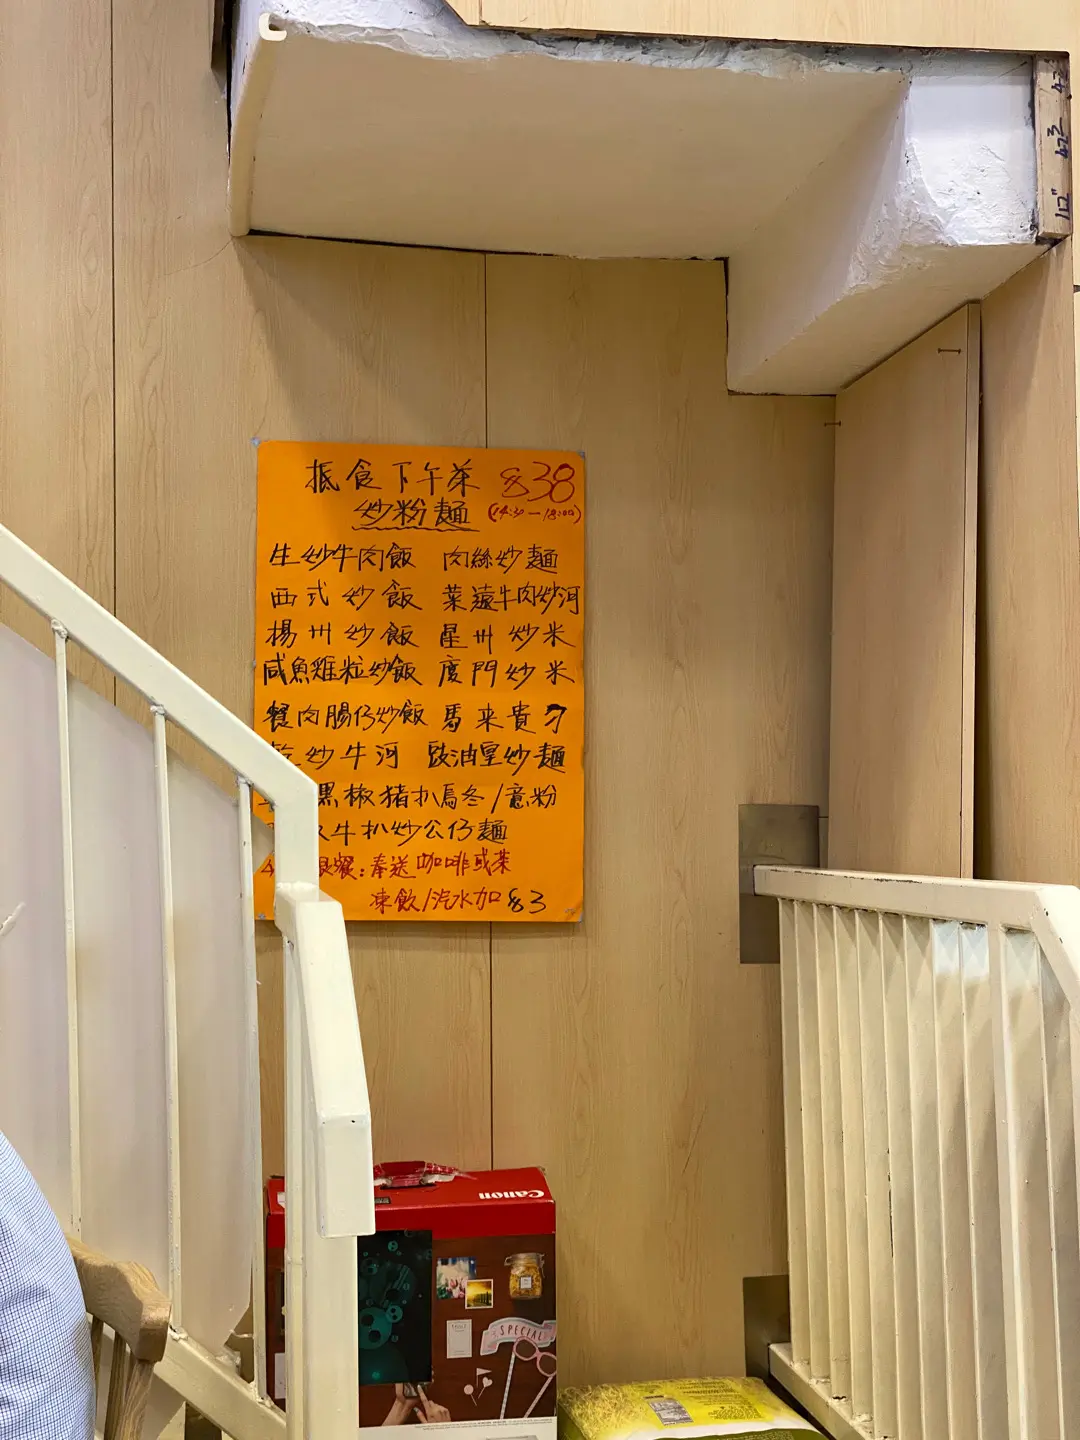 抵食下午茶 $38
炒粉麵 (14:30-18:00)
生炒牛肉飯 肉絲炒麵
西式炒飯 菜遠牛肉炒河
揚州炒飯 星州炒米
咸魚雞粒炒飯 廈門炒米
餐肉腸仔炒飯 馬来貴刁
乾炒牛河 豉油皇炒麵
黑椒猪扒烏冬/意粉
牛扒炒公仔麵
餐:奉送咖啡或茶
凍飲/汽水加$3
Canon
SPECIAL
112" 42³ 42